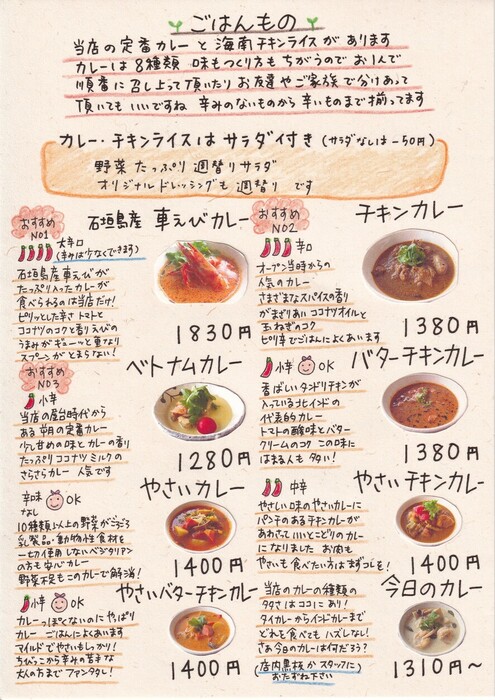 ごはんもの
当店の定番カレーと海南チキンライスがあります
カレーは8種類 味もつくり方もちがうのでお1人で
順番に召し上って頂いたりお友達やご家族で分けあって
頂いてもいいですね 辛みのないものから辛いものまで揃ってます
カレー・チキンライスはサラダ付き(サラダなしは-50円)
野菜たっぷり週替りサラダ
オリジナルドレッシングも週替りです
おすすめ
NO1
石垣島産 車えびカレー
大辛口
(辛みは少なくできます)
石垣島産車えびが
たっぷり入ったカレーが
食べられるのは当店だけ!
ピリッとした辛さトマトと
ココナツのコクと香りえびの
うまみがギューッと重なり
スプーンがとまらない!
1830円
おすすめ
NO2
チキンカレー
辛口
オープン当時からの
人気のカレー
さまざまなスパイスの香り
がまざりあいココナツオイルと
玉ねぎのコク
ピリ辛でごはんによくあいます
1380円
おすすめ
NO3
ベトナムカレー
小辛
当店の屋台時代から
ある
の定番カレー
少し甘めの味とレモンの香り
たっぷりココナツミルクの
さらさらカレー 人気です
1280円
バターチキンカレー
小辛 OK
香ばしいタンドリチキンが
入っている北インドの
代表的カレー
トマトの酸味とバター
クリームのコク この味に
はまる人も多い!
1380円
やさいカレー
辛味
なし
OK
10種類以上の野菜がごろごろ
乳製品・動物性食材を
一切使用しないベジタリアン
の方も安心カレー
野菜不足もこのカレーで解消!
1400円
やさいチキンカレー
中辛
やさしい味のやさいカレーに
パンチのあるチキンカレーが
あわさっていいとこどりのカレー
になりました お肉も
やさいも食べたい方はまずコレを!
1400円
やさいバターチキンカレー
小辛 OK
カレーっぽくないのにやっぱり
カレー ごはんによくあいます
マイルドでやさいもしっかり!
ちびっこから辛みの苦手な
大人の方までファンタし!
1400円
今日のカレー
当店のカレーの種類の
多さはココにあり!
タイカレーからインドカレーまで
どれを食べてもハズレなし!
さぁ今日のカレーは何だろう?
(店内黒板かスタッフに
おたずね下さい)
1310円～